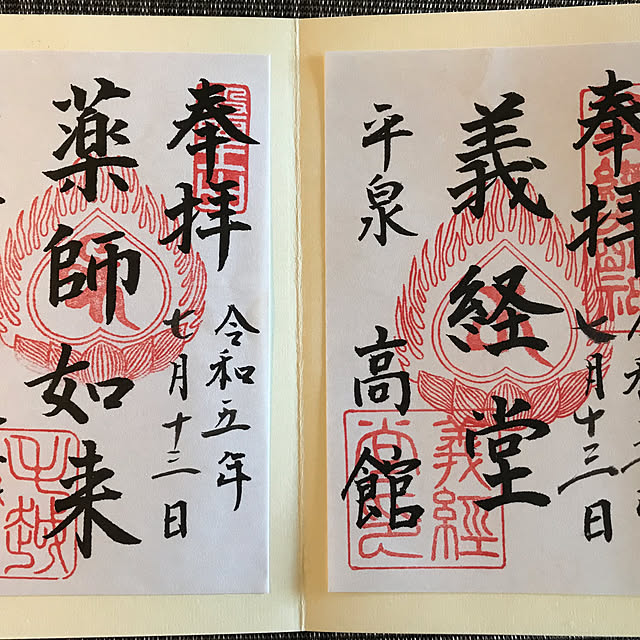 奉拝
令和五年
七月十三日
義経堂
平泉
高館
義経
奉拝
令和五年
七月十三日
薬師如来
毛越